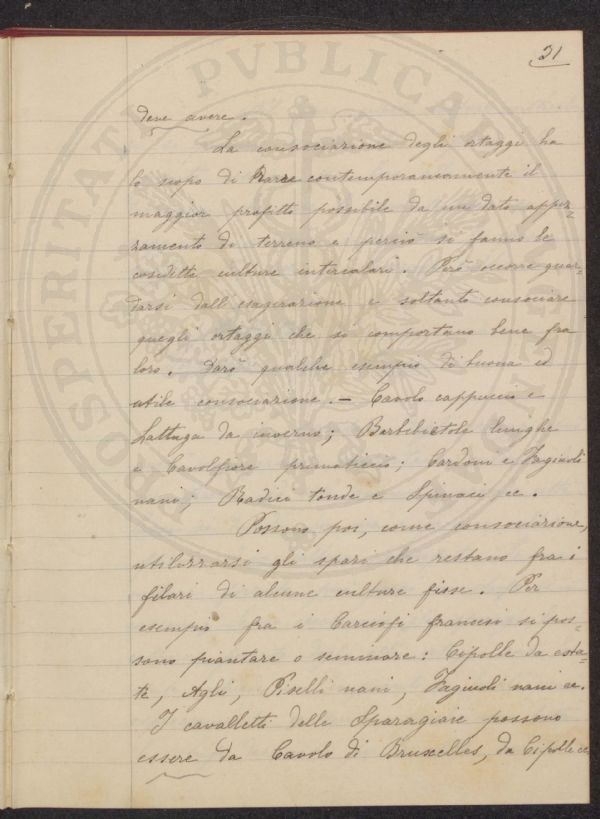 21
deve avere.
La consociazione degli ortaggi ha
lo scopo di trarre contemporaneamente il
maggior profitto possibile da un dato appez-
zamento di terreno e perciò si fanno le
cosidette culture intercalari. Però occorre guar-
darsi dall'esagerazione e soltanto consociare
quegli ortaggi che si comportano bene fra
loro. Darò qualche esempio di buona ed
utile consociazione. — Cavolo cappuccio e
Lattuga da inverno; Barbebietole lunghe
e Cavolfiore primaticcio; Cardoni e Fagiuoli
nani; Radici tonde e Spinaci, ec.
Possono poi, come consociazione,
utilizzarsi gli spazi che restano fra i
filari di alcune culture fisse. Per
esempio fra i Carciofi francesi si pos-
sono piantare o seminare: Cipolle da esta-
te, Agli, Piselli nani, Fagiuoli nani ec.
I cavalletti delle Sparagiaie possono
essere da Cavolo di Bruxelles, da Cipolle ec
PROSPERITATI PVBLICAE AVGENDAE